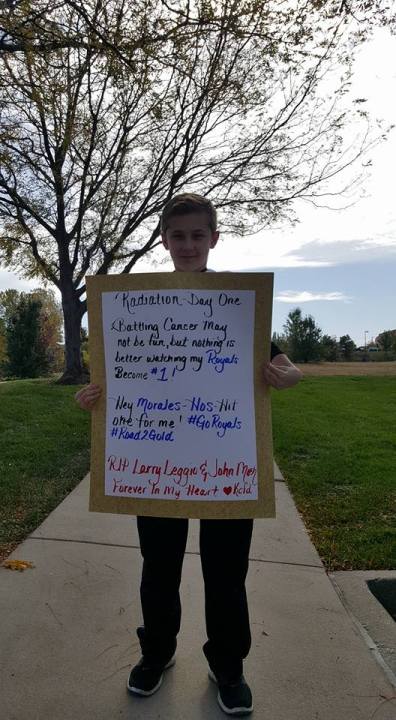 Radiation-Day One
Battling Cancer May
not be fun, but nothing is
better watching my Royals
Become #1!
Hey Morales-Hos Hit
one for me! #GoRoyals
#Road2Gold
RIP Larry Leggio & John Mesh
Forever In My Heart ❤Kcfd